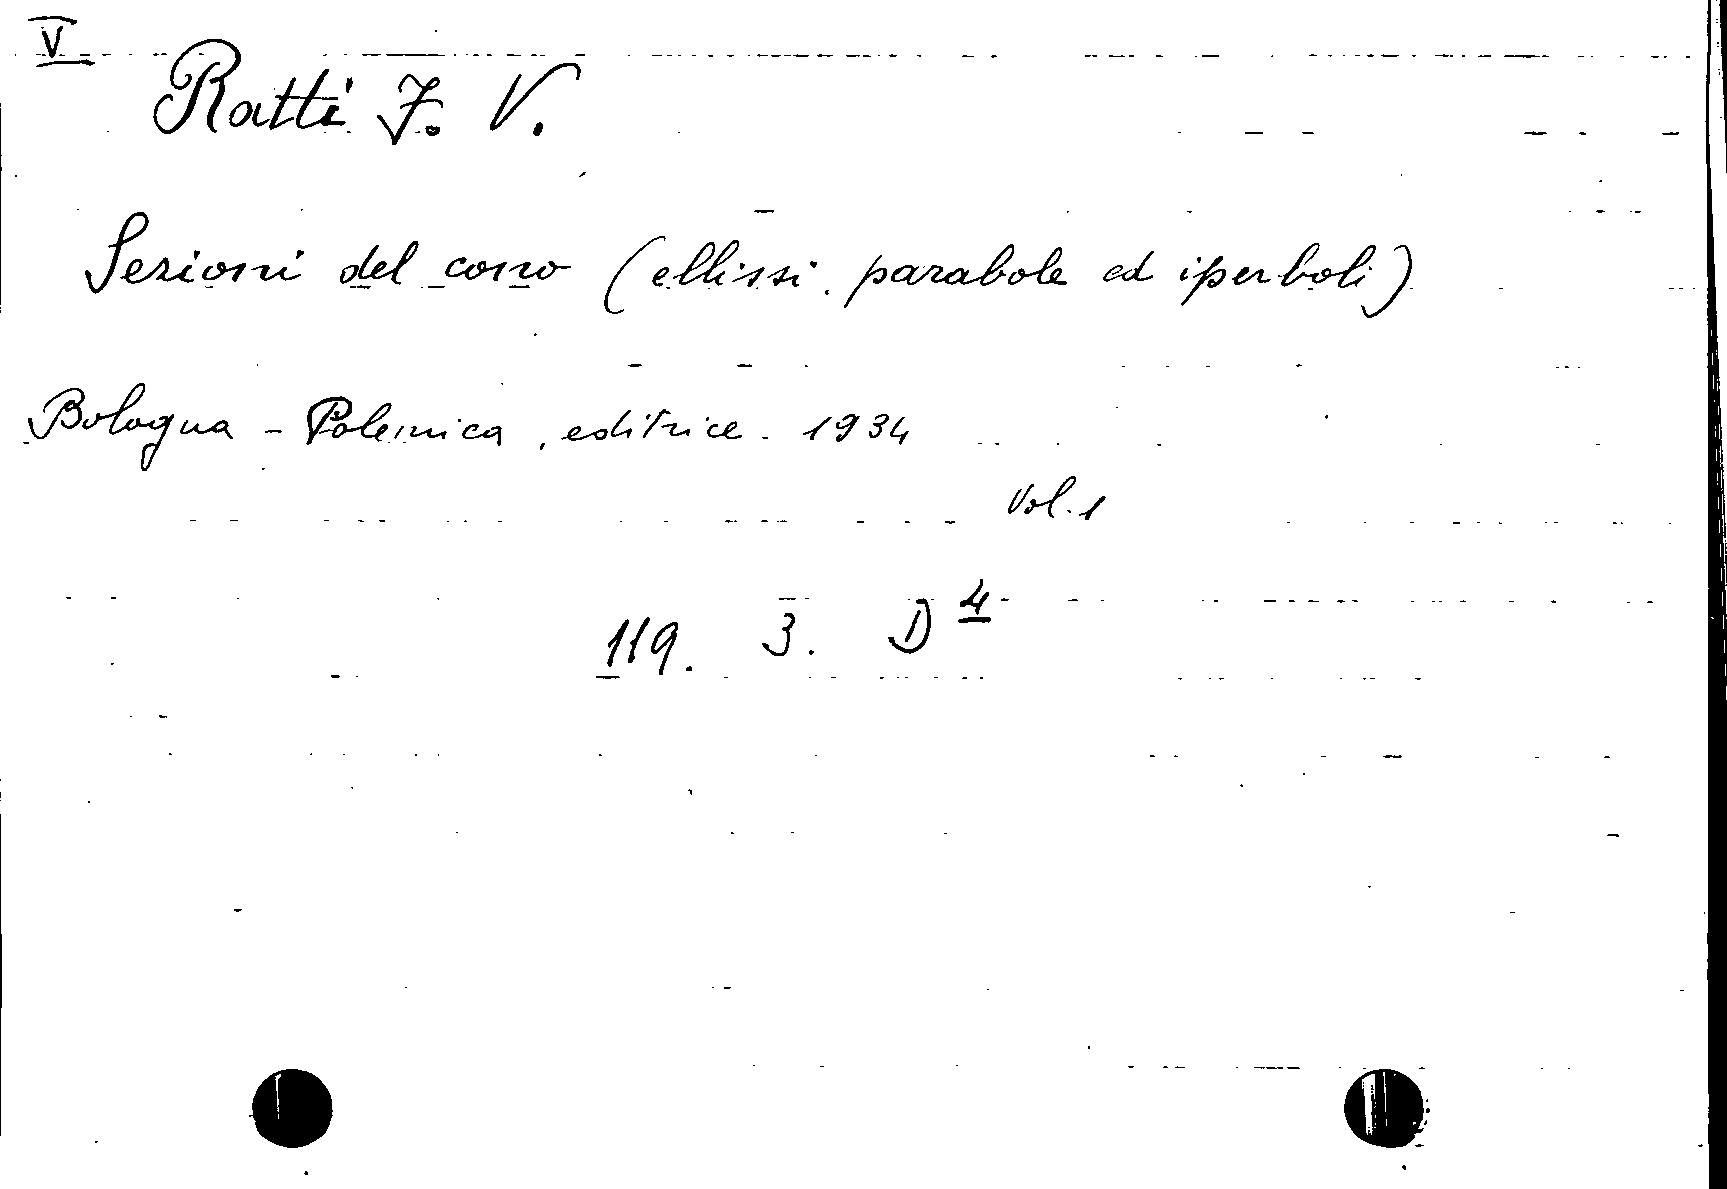 V
Ratti J. V.
Sezioni del cono (ellissi. parabole ed iperboli)
Bologna - Polemica, editrice. 1934
Vol. 1
119. 3. D 4